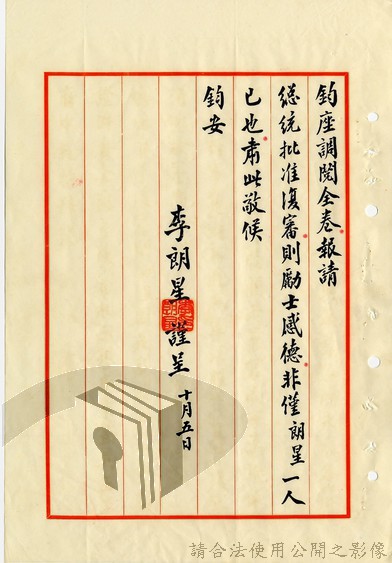 鈞座調閱全卷報請
總統批准復審則勵士感德非僅朗星一人
已也肅此敬候
鈞安
李朗星謹呈 十月五日
請合法使用公開之影像